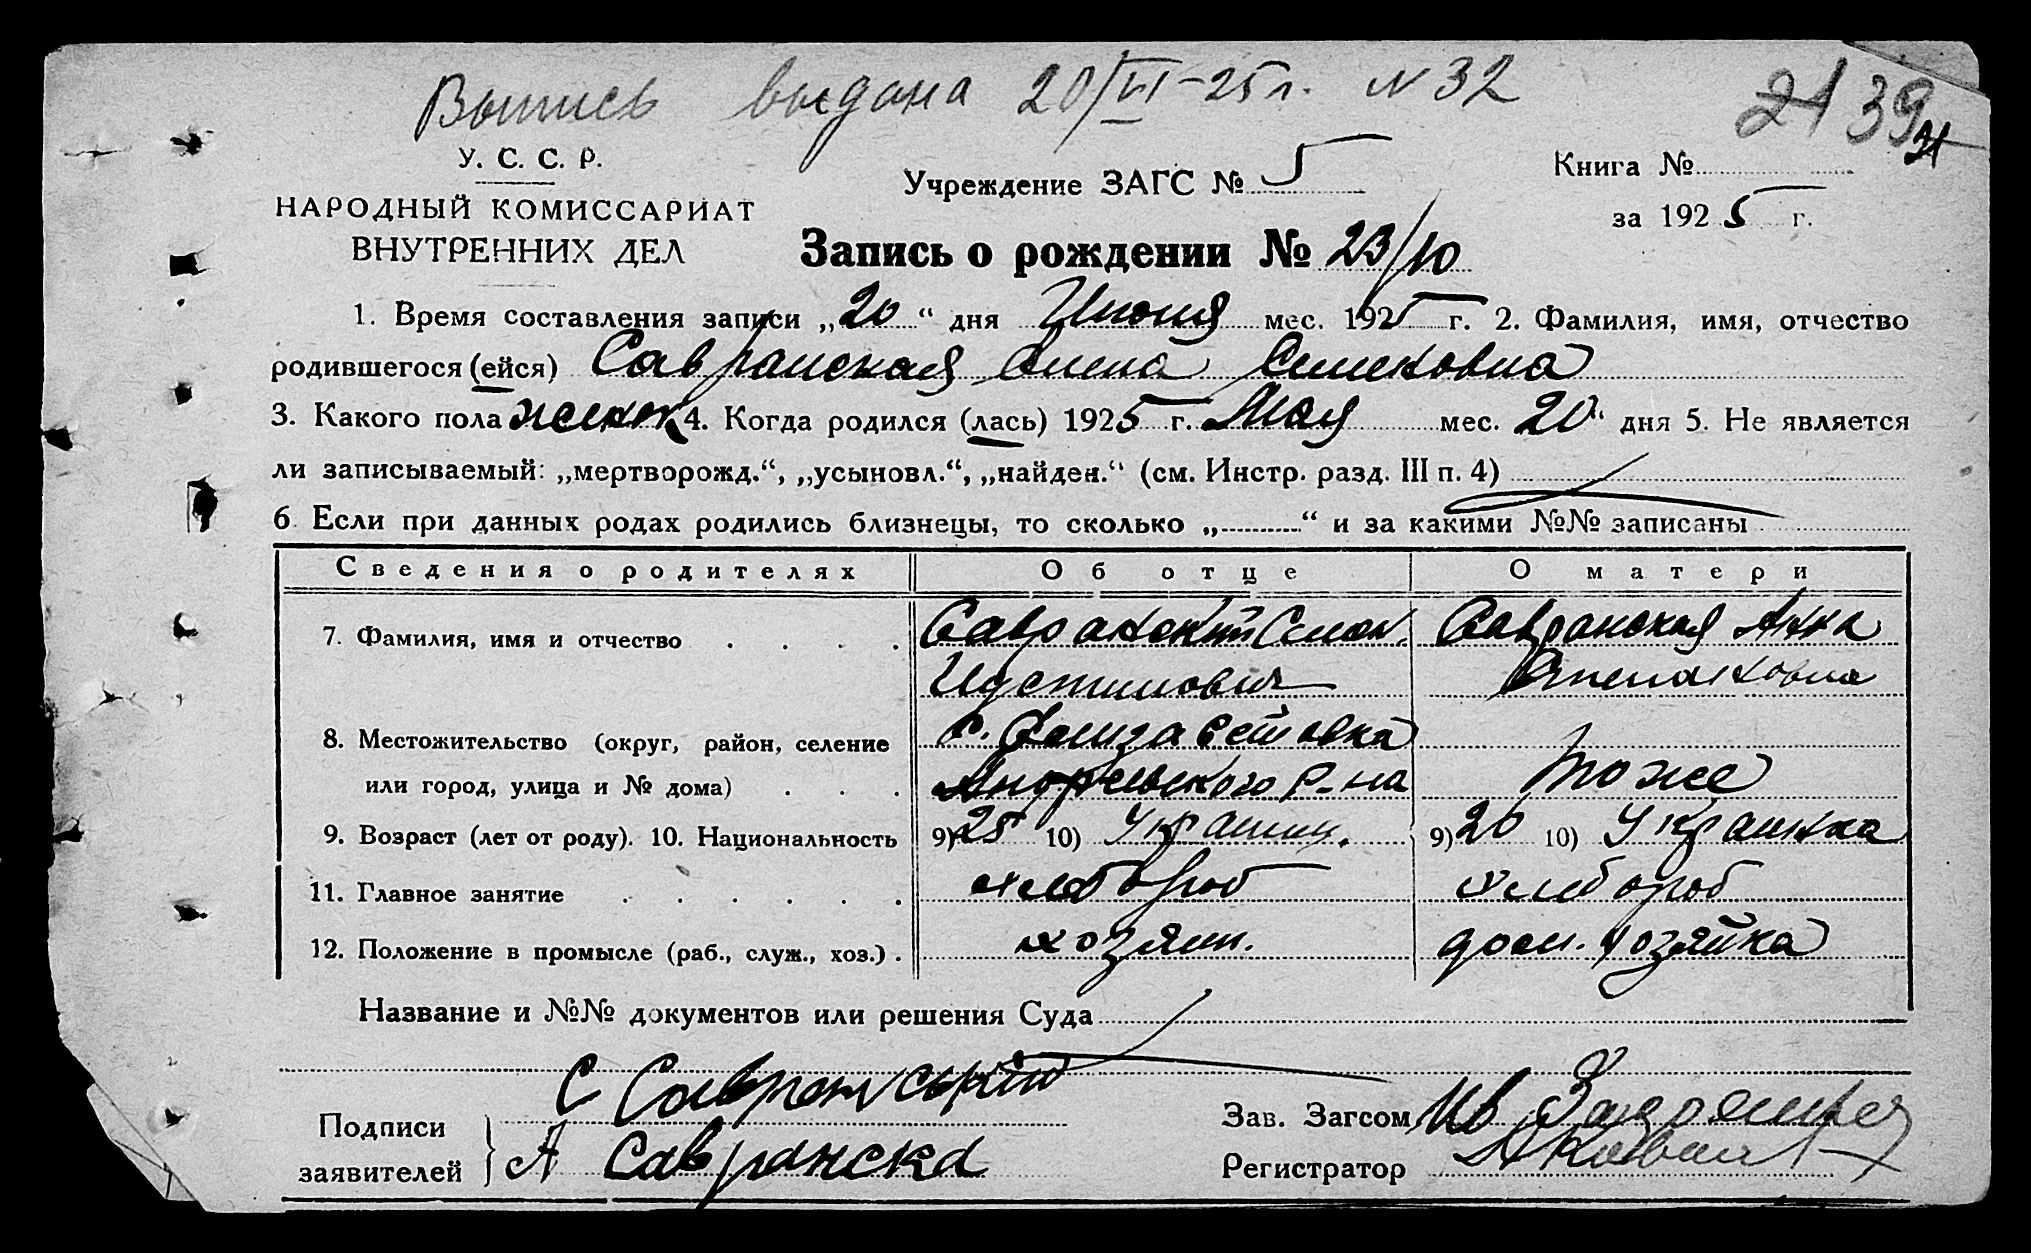 Выпись выдана 20/VI-25 г. N 32
21 39
У. С. С. Р.
НАРОДНЫЙ КОМИССАРИАТ
ВНУТРЕННИХ ДЕЛ
Учреждение ЗАГС № 5
Книга №
за 1925 г.
Запись о рождении № 23/10
1. Время составления записи „20“ дня Июня мес. 1925 г. 2. Фамилия, имя, отчество
родившегося (ейся) Савранская Елена Семеновна
3. Какого пола женск 4. Когда родился (лась) 1925 г. Мая мес. 20“ дня 5. Не является
ли записываемый: „мертворожд.“, „усыновл.“, „найден.“ (см. Инстр. разд. III п. 4)
6. Если при данных родах родились близнецы, то сколько „ “ и за какими №№ записаны
Сведения о родителях Об отце О матери
7. Фамилия, имя и отчество Савранский Семен. Савранская Анна
Иустинович Степановна
8. Местожительство (округ, район, селение с. Елизаветовка
или город, улица и № дома) р-на тоже
9. Возраст (лет от роду). 10. Национальность 9) 25 10) Украин. 9) 20 10) Украинка
11. Главное занятие хлебороб хлебороб
12. Положение в промысле (раб., служ., хоз.) хозяин. дом. хозяйка
Название и №№ документов или решения Суда
Подписи
заявителей
С Савранський
А Савранска
Зав. Загсом Ив
Регистратор